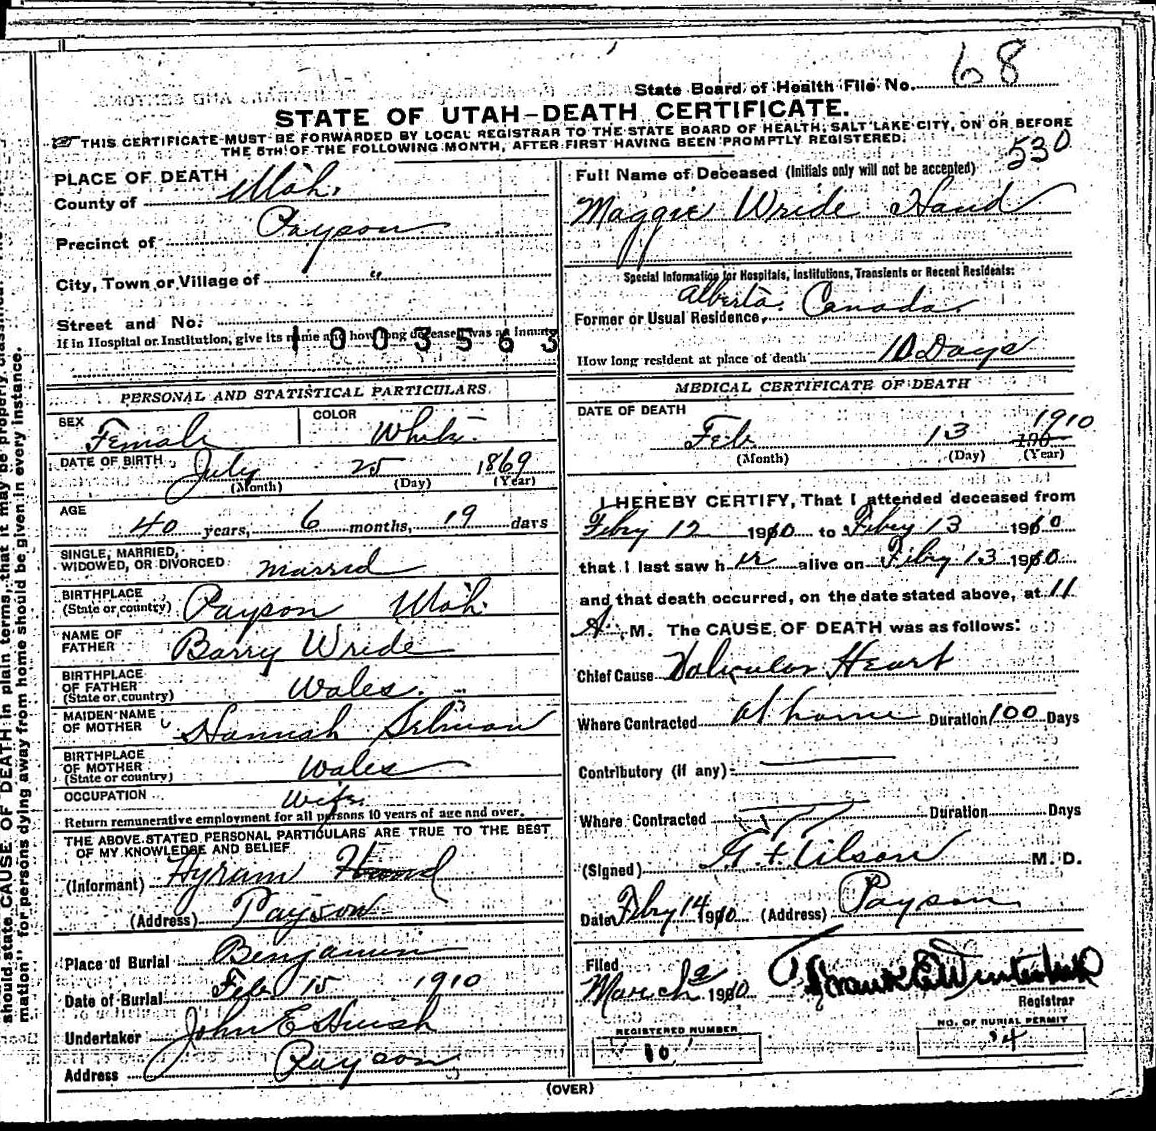 State Board of Health File No. 68
STATE OF UTAH-DEATH CERTIFICATE.
THIS CERTIFICATE MUST BE FORWARDED BY LOCAL REGISTRAR TO THE STATE BOARD OF HEALTH, SALT LAKE CITY, ON OR BEFORE
THE 5TH OF THE FOLLOWING MONTH, AFTER FIRST HAVING BEEN PROMPTLY REGISTERED.
530
PLACE OF DEATH
County of Utah.
Precinct of Payson
City, Town or Village of "
Street and No.
If in Hospital or Institution, give its name and how long deceased was an inmate
1003563
PERSONAL AND STATISTICAL PARTICULARS.
SEX Female
COLOR White
DATE OF BIRTH July 25 1869
(Month) (Day) (Year)
AGE 40 years, 6 months, 19 days
SINGLE, MARRIED,
WIDOWED, OR DIVORCED married
BIRTHPLACE
(State or country) Payson Utah.
NAME OF
FATHER Barry Wride
BIRTHPLACE
OF FATHER
(State or country) Wales.
MAIDEN NAME
OF MOTHER Hannah Selman
BIRTHPLACE
OF MOTHER
(State or country) Wales
OCCUPATION Wife
Return remunerative employment for all persons 10 years of age and over.
THE ABOVE STATED PERSONAL PARTICULARS ARE TRUE TO THE BEST
OF MY KNOWLEDGE AND BELIEF
(Informant) Hyrum Hand
(Address) Payson
Place of Burial Benjamin
Date of Burial Feb 15 1910
Undertaker John E Huish
Address Payson
Full Name of Deceased (Initials only will not be accepted)
Maggie Wride Hand
Special Information for Hospitals, Institutions, Transients or Recent Residents:
Former or Usual Residence, Alberta. Canada.
How long resident at place of death 10 Days
MEDICAL CERTIFICATE OF DEATH
DATE OF DEATH
Feb 13 190 1910
(Month) (Day) (Year)
I HEREBY CERTIFY, That I attended deceased from
Febry 12 1910 to Febry 13 1910
that I last saw her alive on Febry 13 1910
and that death occurred, on the date stated above, at 11
A. M. The CAUSE OF DEATH was as follows:
Chief Cause Valvular Heart
Where Contracted at home Duration 100 Days
Contributory (if any):
Where Contracted Duration Days
(Signed) Tilson M. D.
Date Febry 14 1910 (Address) Payson
Filed
March 2 1910 Frank E
Registrar
REGISTERED NUMBER
10
NO. OF BURIAL PERMIT
14
(OVER)
should state CAUSE OF DEATH in plain terms, that it may be properly classified.
mation" for persons dying away from home should be given in every instance.